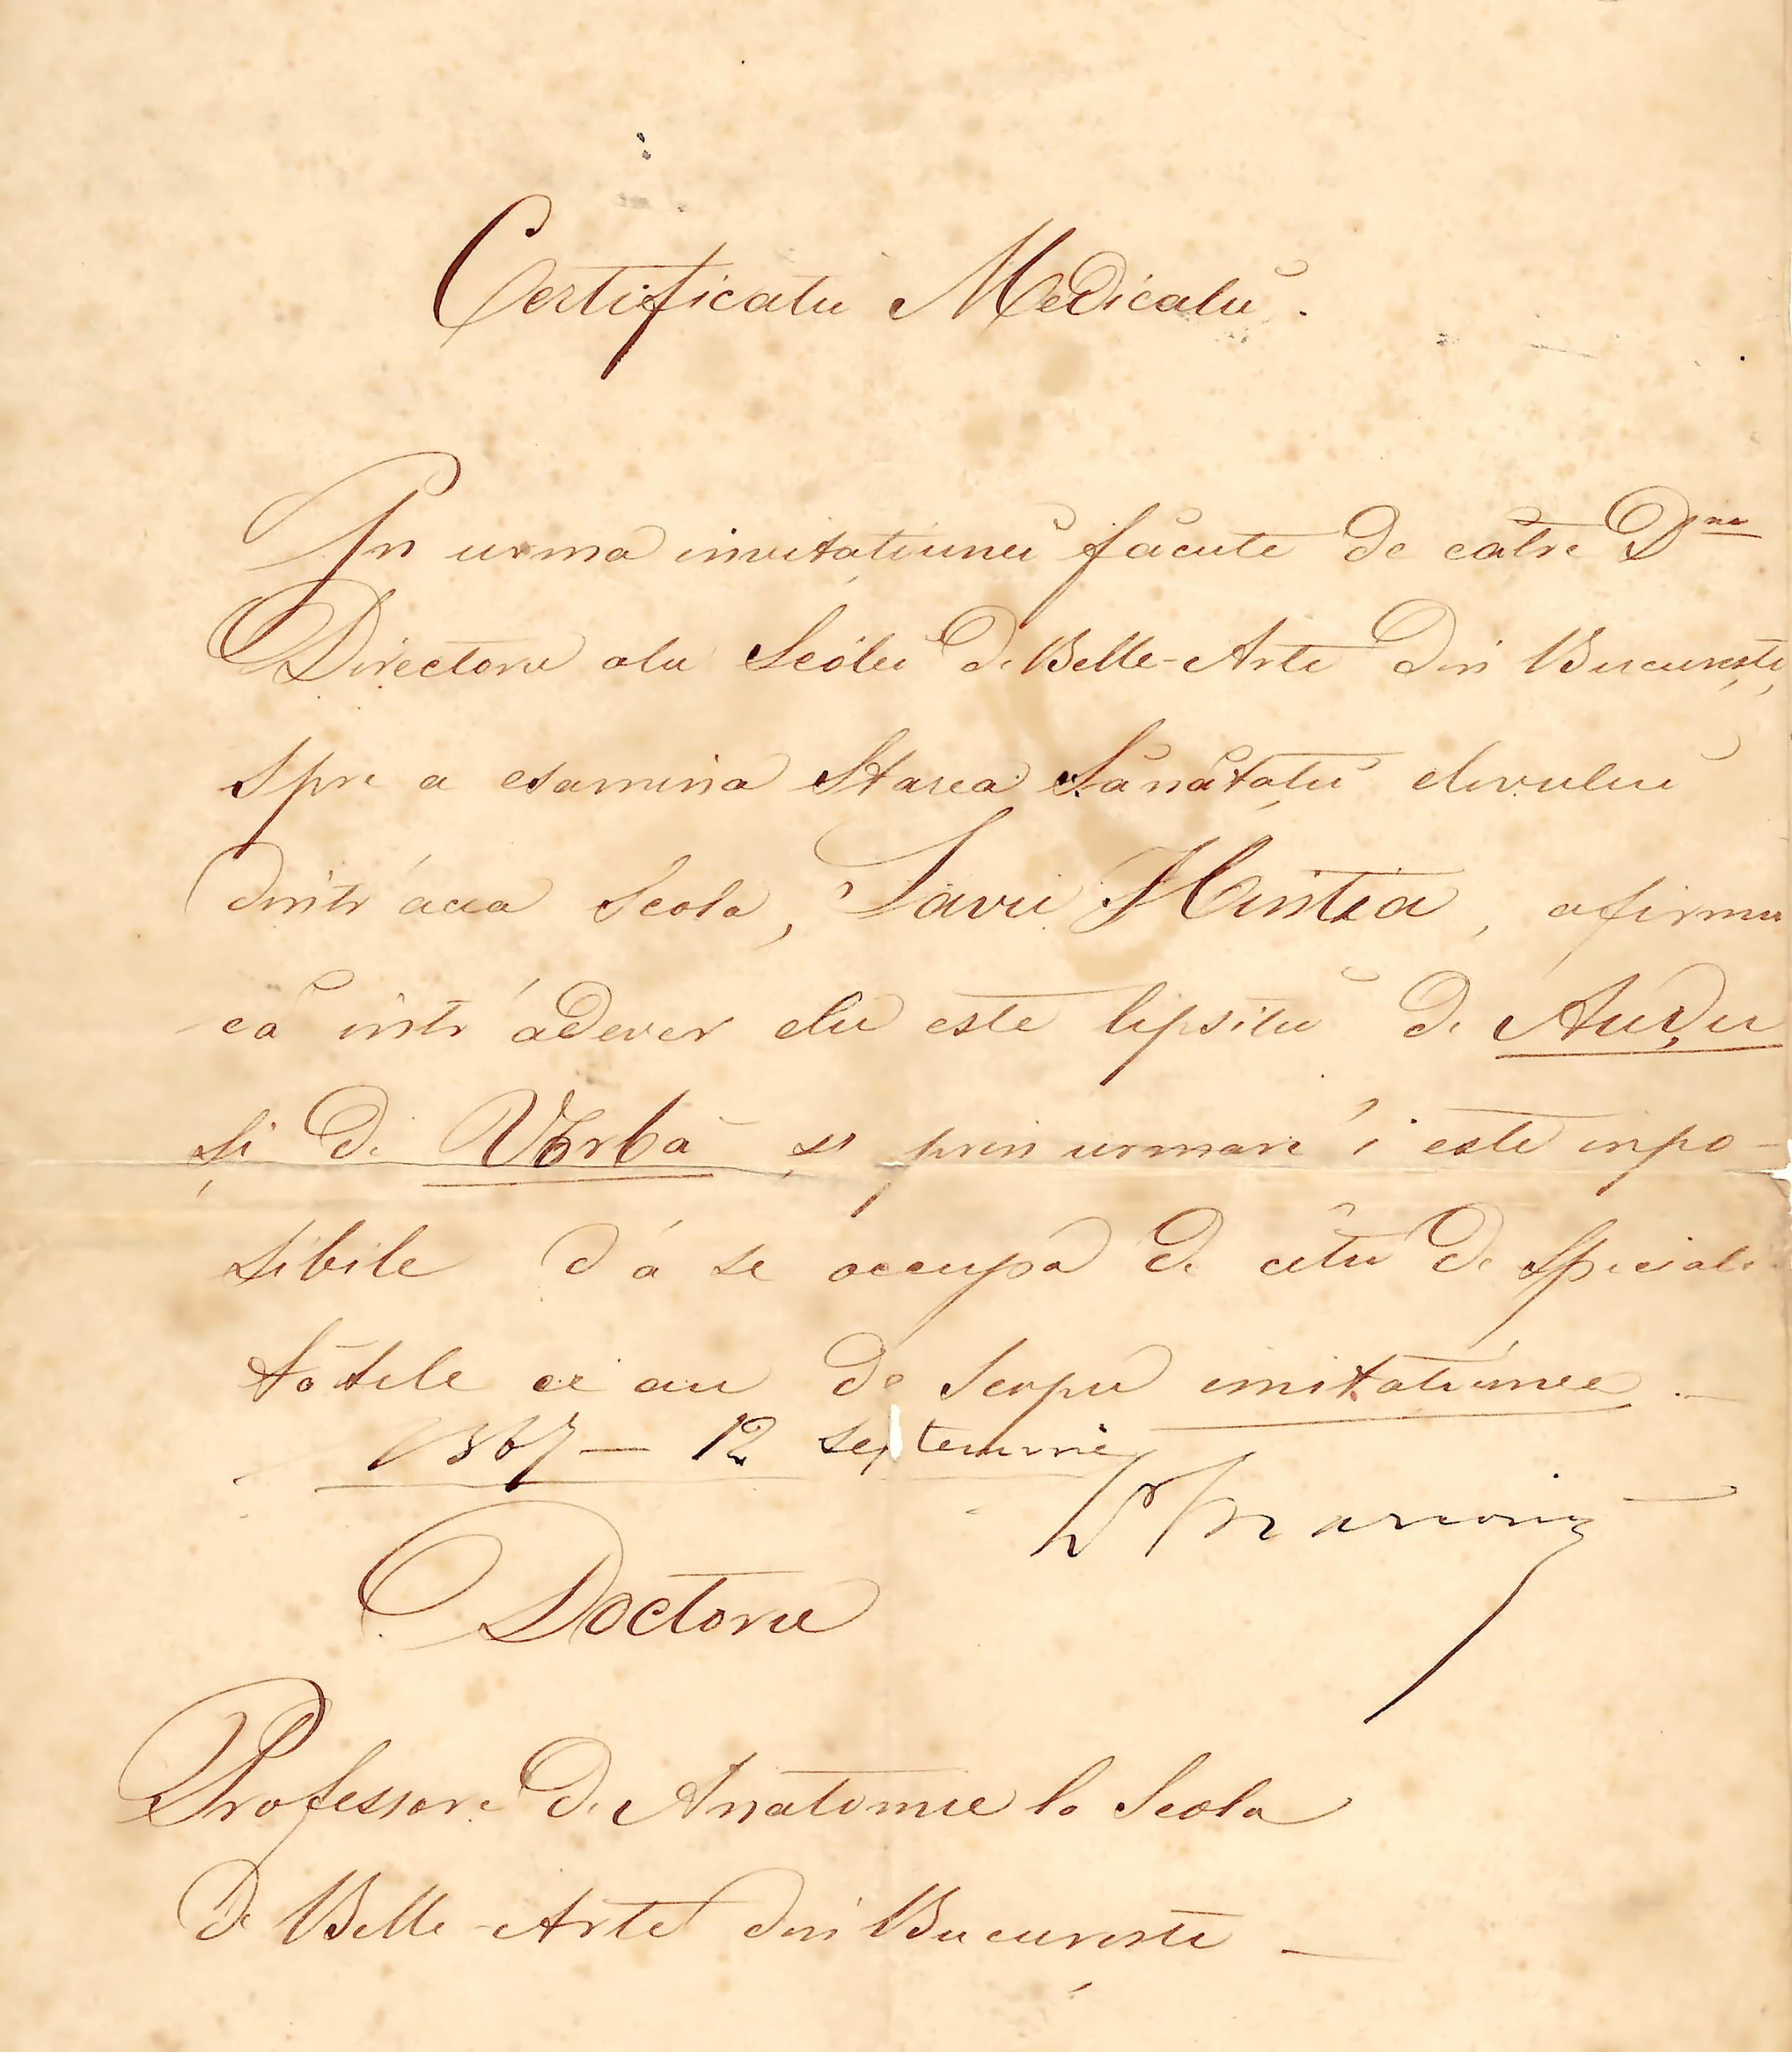 Certificatu Medicalŭ.
In urma invitaţiunei făcute de cătrе D^nu
Directoru alu Scólei de Belle-Arte din Bucureşti,
spre a esamina Starea Sănătăţii elevului
dintr'acea Scola, Savu Hentia, afirmu
că intr'adever elu este lipsitu de Auḑu
şi de Vorbă şi prin urmare i este inpo-
sibile d'a se occupa de câtu de Speciali
tățile ce au de scopu imitatiunea.
1867 — 12 Septemvrie
Doctoru
Professore de Anatomie la Scola
de Belle-Arte din Bucureşti —